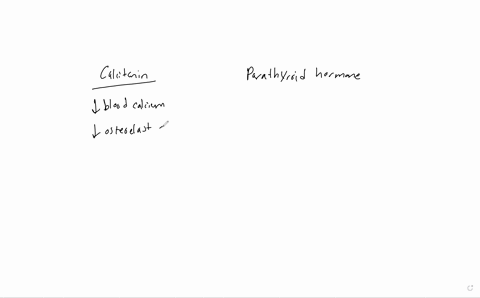 Calcitonin
↓ blood calcium
↓ osteoclast
Parathyroid hormone